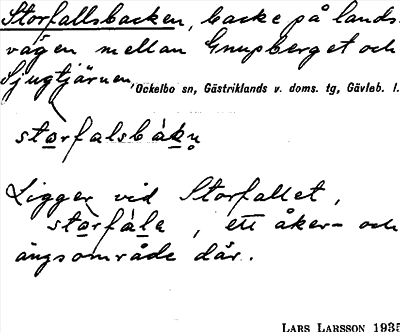 Storfallsbacken, backe på lands-
vägen mellan Gnupberget och
Sjugtjärnen, Ockelbo sn, Gästriklands v. doms. tg, Gävleb. l.
storfalsbákn̥
Ligger vid Storfallet,
stòrfále, ett åker- och
ängsområde där.
LARS LARSSON 1935